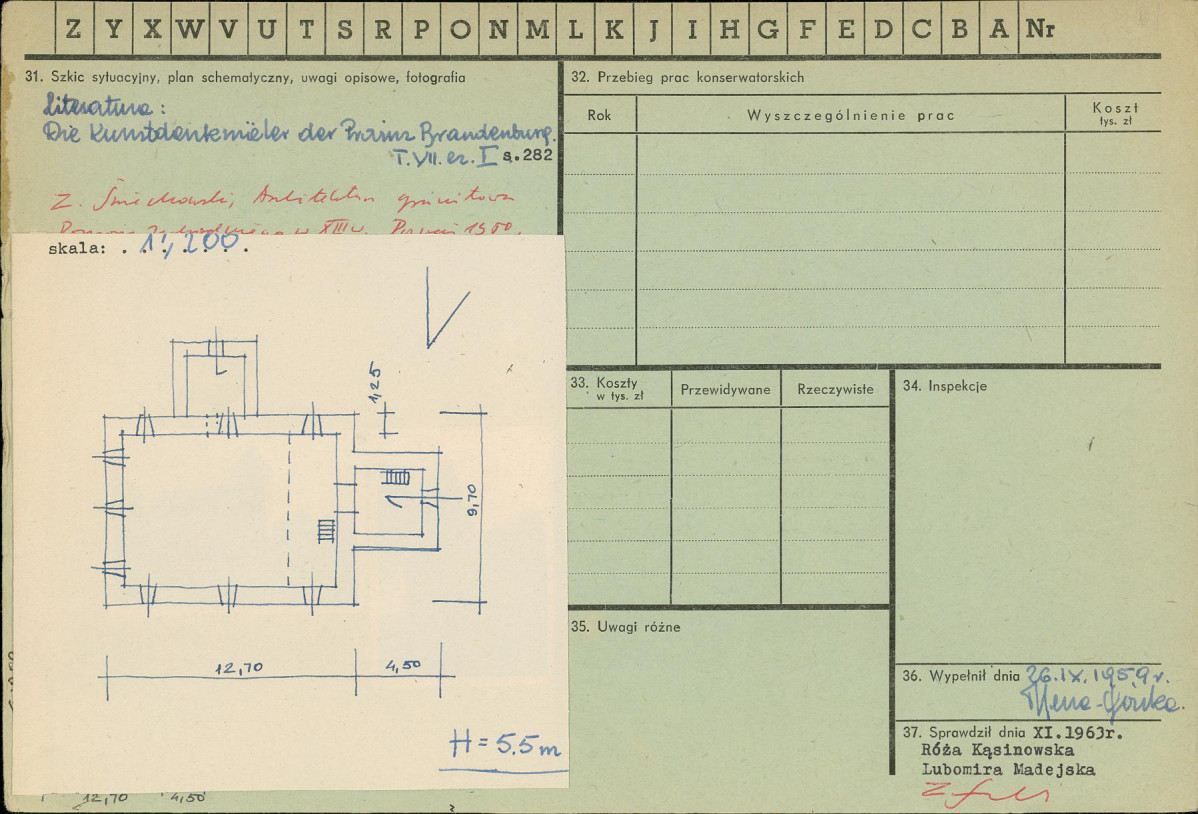 Z Y X W V U T S R P O N M L K J I H G F E D C B A Nr
31. Szkic sytuacyjny, plan schematyczny, uwagi opisowe, fotografia
Literatura:
Die Kunstdenkmäler der Prainz Brandenburg.
T.VII. cz. I s.282
Z. Świechowski, Architektura granitowa
w XIII w. Poznań 1950.
skala: . 1:200 .
1,25
9,70
12,70
4,50
H = 5.5 m
12,70 4,50
32. Przebieg prac konserwatorskich
Rok
Wyszczególnienie prac
Koszt
tys. zł
33. Koszty
w tys. zł
Przewidywane
Rzeczywiste
34. Inspekcje
35. Uwagi różne
36. Wypełnił dnia 26.IX.1959 r.
37. Sprawdził dnia XI.1963r.
Róża Kąsinowska
Lubomira Madejska